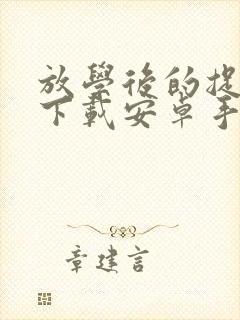 放學後的捉
下載安卓手
章建言